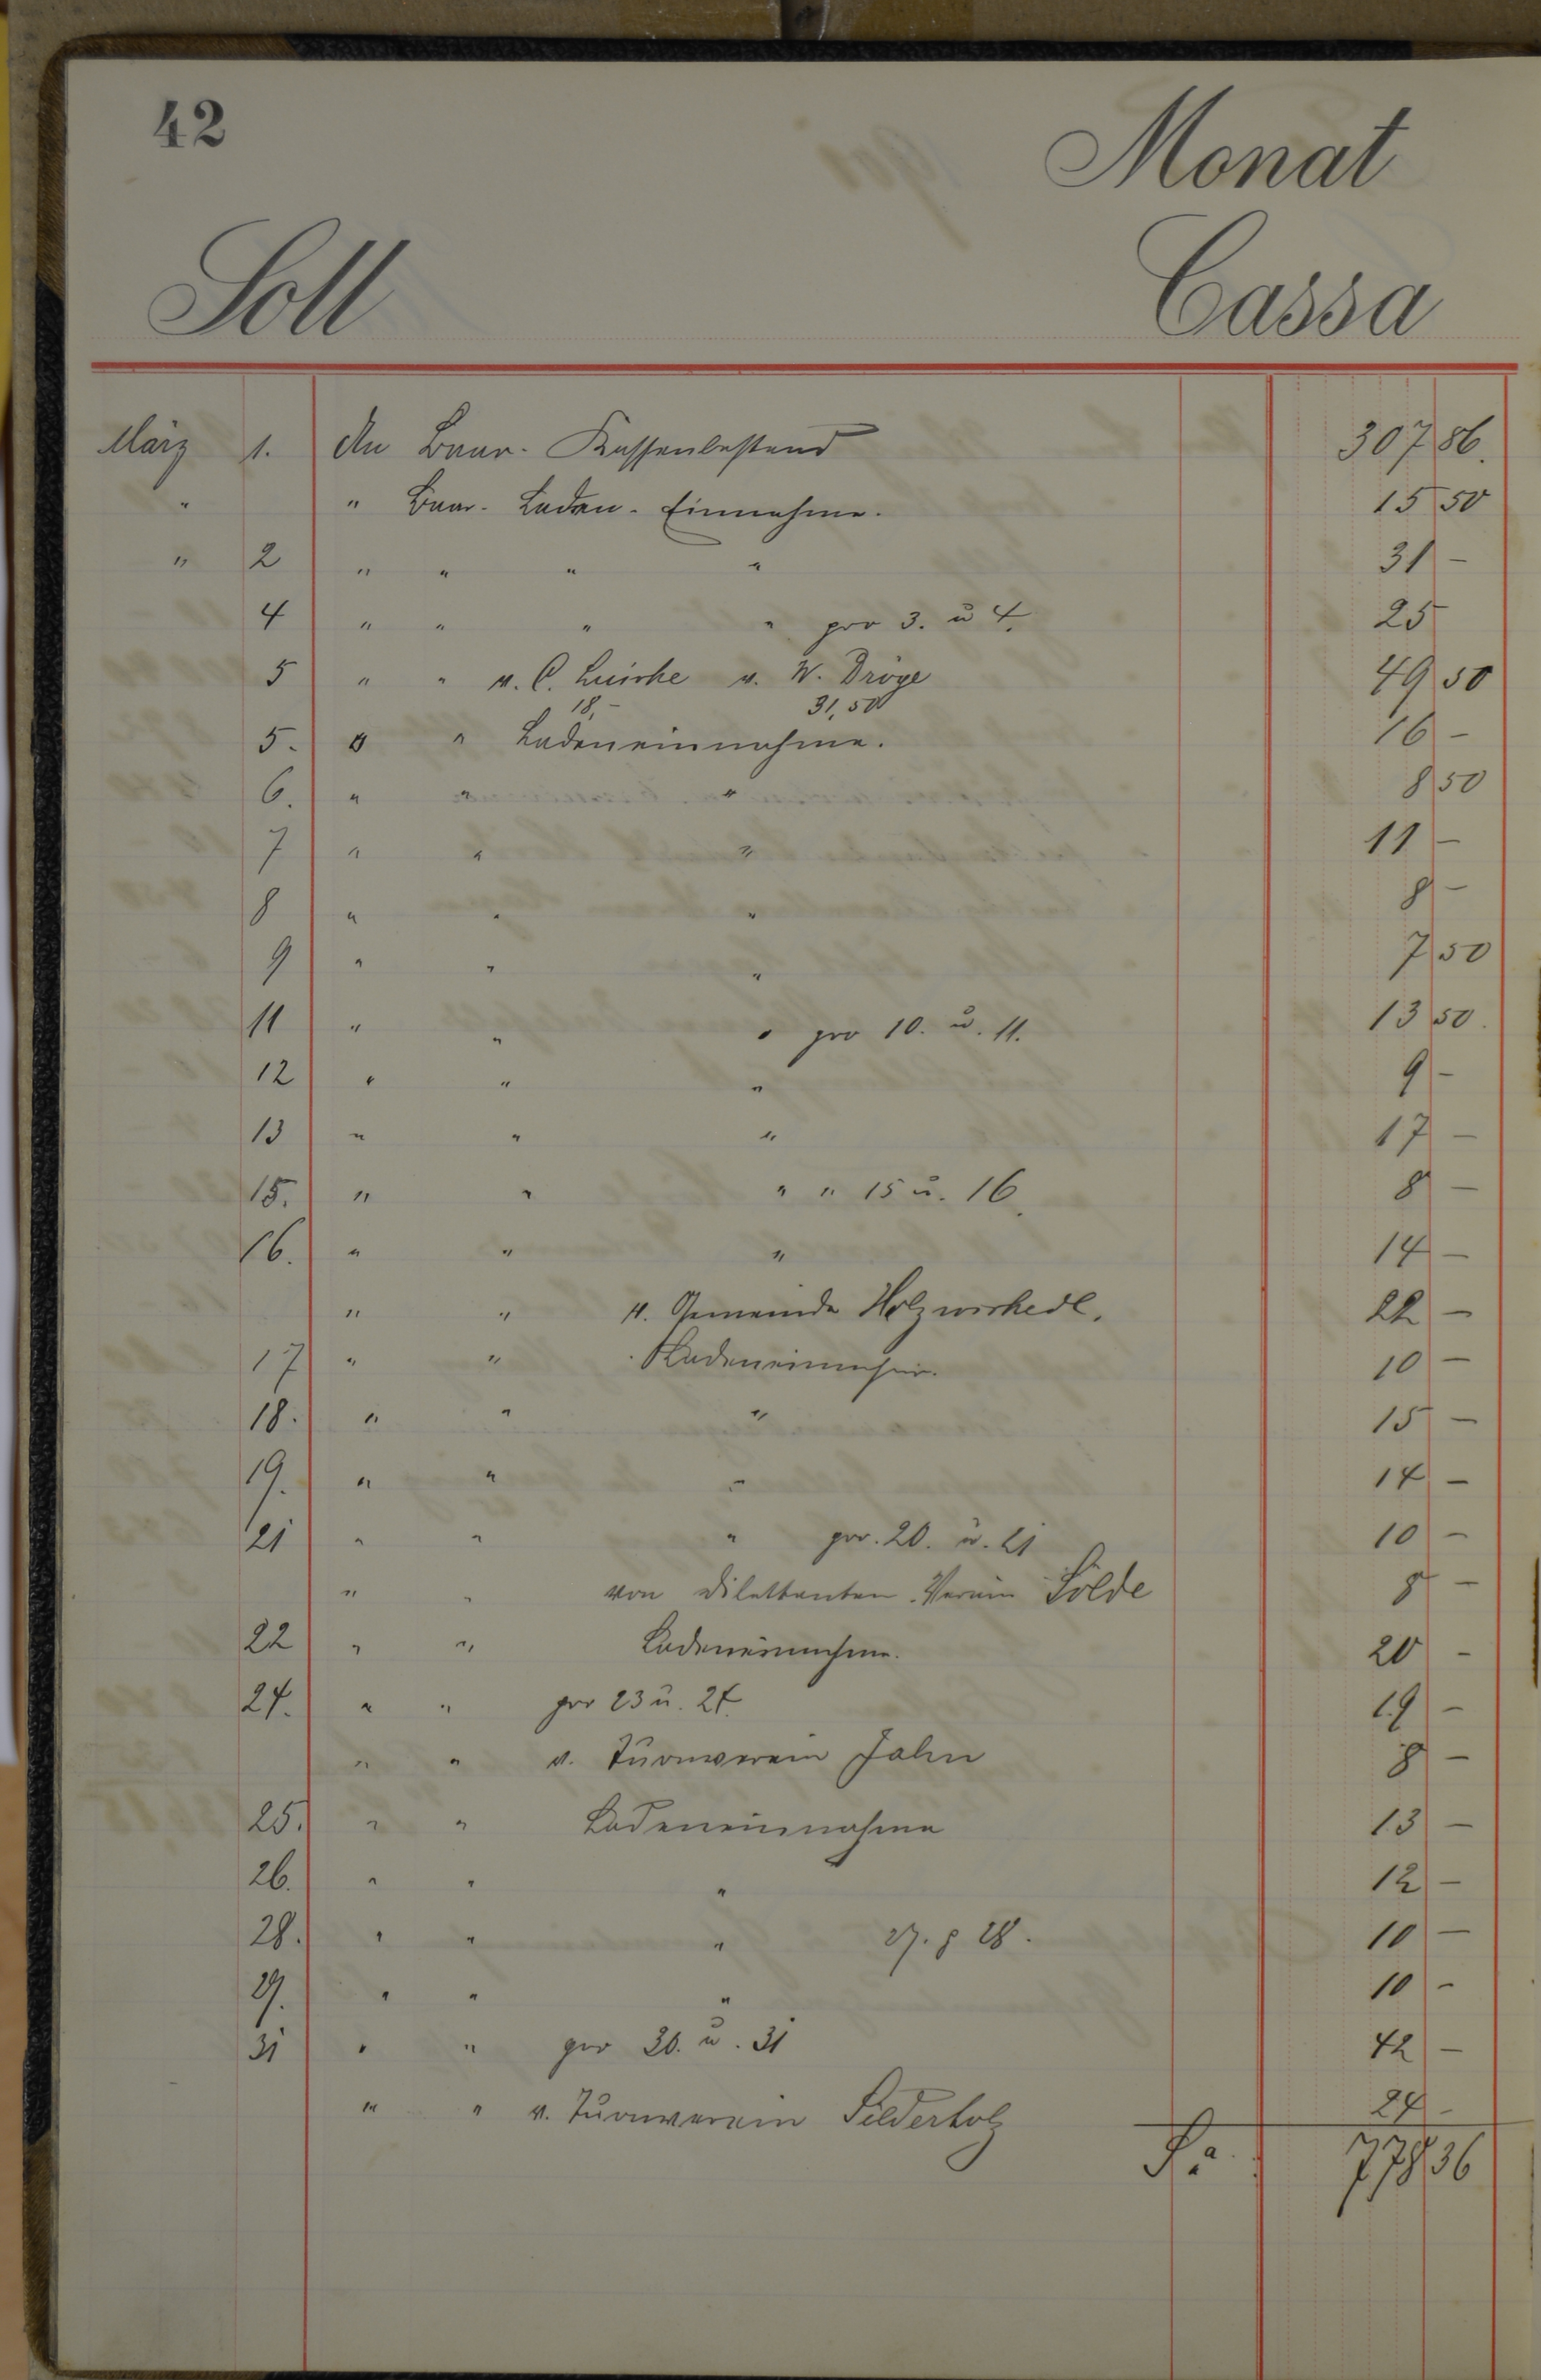 42
Monat
Soll Cassa
März 1. An Baar-Kassenbestand 307 86.
" " Baar-Laden-Einnahme. 15 50
" 2 " " " " 31 -
4 " " " " pro 3. u 4. 25
5 " " v. C. v. W. Dröge 49 50
18,- 31,50
5. " " Ladeneinnahme. 16 -
6. " " " 8 50
7 " " " 11 -
8 " " " 8 -
9 " " " 7 50
11 " " " pro 10. u. 11. 13 50.
12 " " " 9 -
13 " " " 17 -
15. " " " " 15 u. 16. 8 -
16. " " " 14 -
" " v. Gemeinde 22 -
17 " " Ladeneinnahm. 10 -
18. " " " 15 -
19. " " " 14 -
21 " " " pro. 20. u. 21 10 -
" " von Dilettanten-Verein Sölde 8 -
22 " " Ladeneinnahme. 20 -
24. " " pro 23 u. 24. 19 -
" " v. Turnverein Jahn 8 -
25. " " Ladeneinnahme 13 -
26. " " " 12 -
28. " " " 27. & 28. 10 -
29. " " " 10 -
31 " " pro 30. u. 31 42 -
" " v. Turnverein 24 -
Sa. 778 36